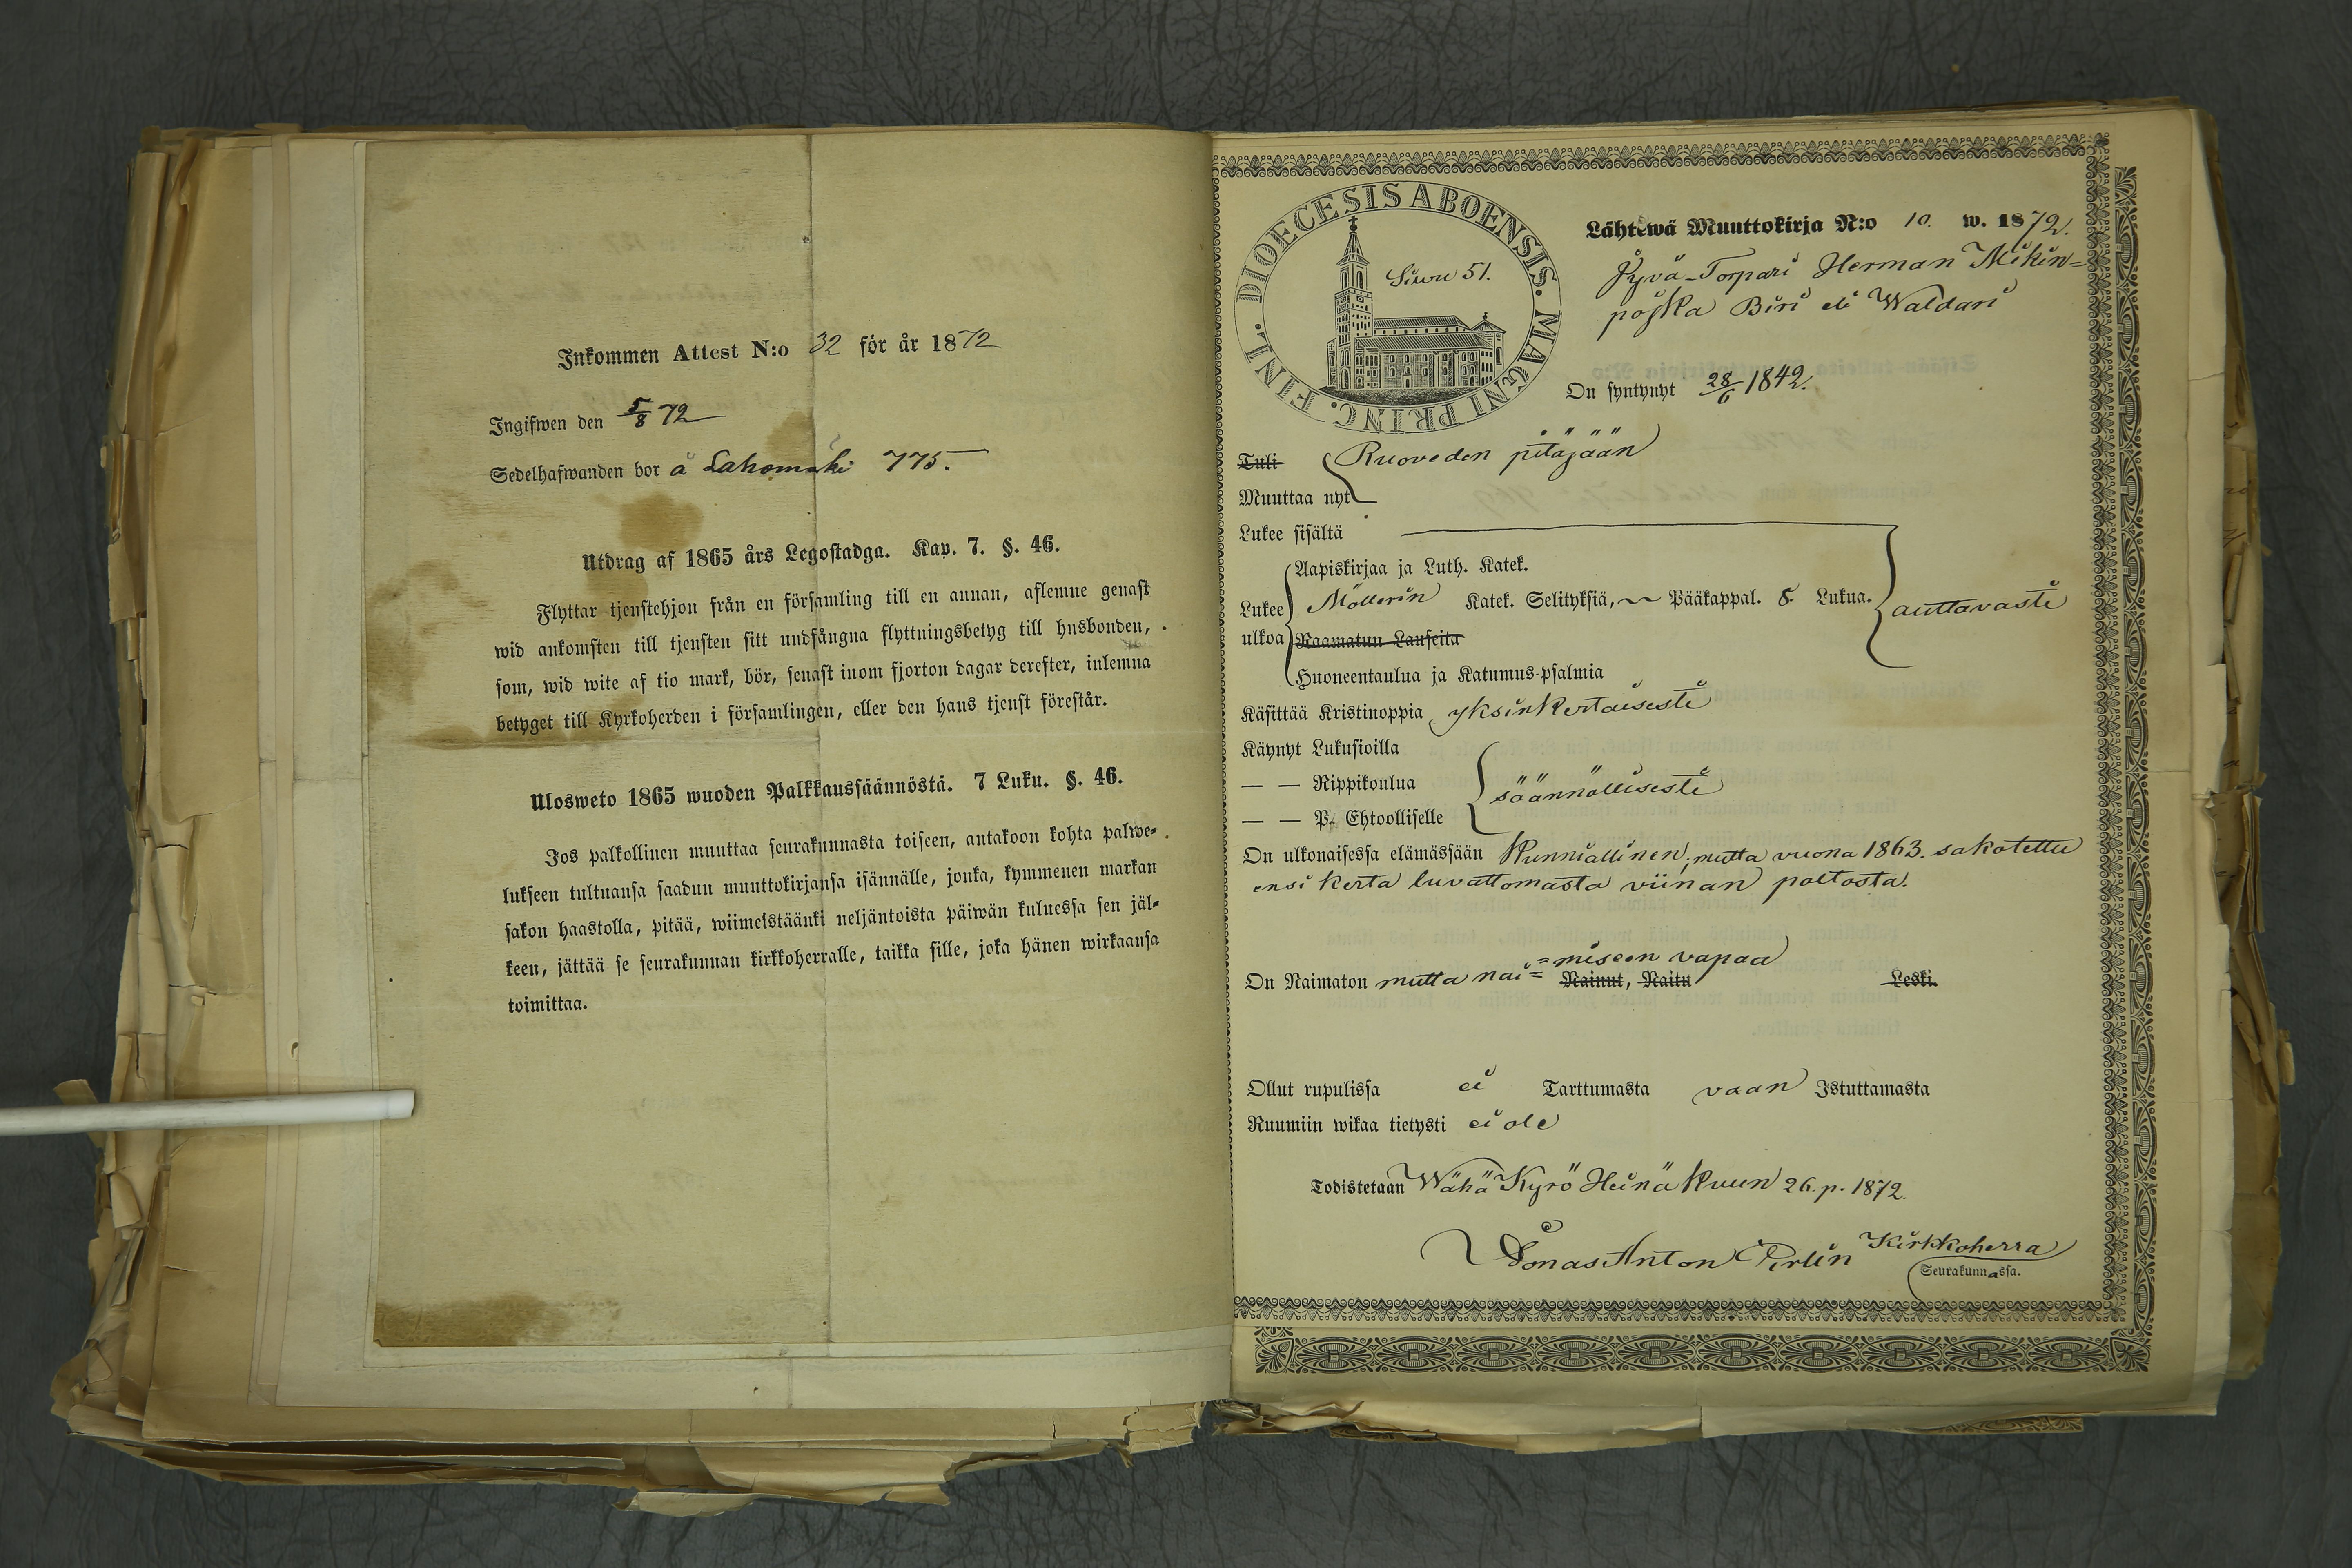 Inkommen Attest N:o 32 för år 1872
Ingifwen den 5/8 72
Sedelhafwanden bor å Lahomäki 775.
Utdrag af 1865 års Legostadga. Kap. 7. §. 46.
Flyttar tjenstehjon från en församling till en annan, aflemne genast
wid ankomsten till tjensten sitt undfångna flyttningsbetyg till husbonden,
som, wid wite af tio mark, bör, senast inom fjorton dagar derefter, inlemna
betyget till Kyrkoherden i församlingen, eller den hans tjenst förestår.
Ulosweto 1865 wuoden Palkkaussäännöstä. 7 Luku. §. 46.
Jos palkollinen muuttaa seurakunnasta toiseen, antakoon kohta palwe-
lukseen tultuansa saadun muuttokirjansa isännälle, jonka, kymmenen markan
sakon haastolla, pitää, wiimeistäänki neljäntoista päiwän kuluessa sen jäl-
keen, jättää se seurakunnan kirkkoherralle, taikka sille, joka hänen wirkaansa
toimittaa.
DIOECESIS ABOENSIS. MAGNI PRINC. FINL.
Siwu 51.
Lähtewä Muuttokirja N:o 10. w. 1872.
Jyvä-Torpari Herman Mikin=
pojka Biri eli Waldari
On syntynyt 28/6 1842.
Tuli
Ruoveden pitäjään
Muuttaa nyt
Lukee sisältä
Aapiskirjaa ja Luth. Katek.
Lukee Möllerin Katek. Selityksiä, Pääkappal. 8. Lukua. auttavasti
ulkoa Raamatun Lauseita
Huoneentaulua ja Katumus-psalmia
Käsittää Kristinoppia yksinkertaisesti
Käynyt Lukusioilla
— — Rippikoulua säännöllisesti
— — P. Ehtoolliselle
On ulkonaisessa elämässään Kunniallinen, mutta vuona 1863. sakotettu
ensi kerta luvattomasta viinan poltosta.
=miseen vapaa
On Naimaton mutta nai= Nainut, Naitu Leski.
Ollut rupulissa ei Tarttumasta vaan Istuttamasta
Ruumiin wikaa tietysti ei ole
Todistetaan Wähä Kyrö Heinä Kuun 26. p. 1872.
Jonas Anton Perlin Kirkkoherra
Seurakunnassa.